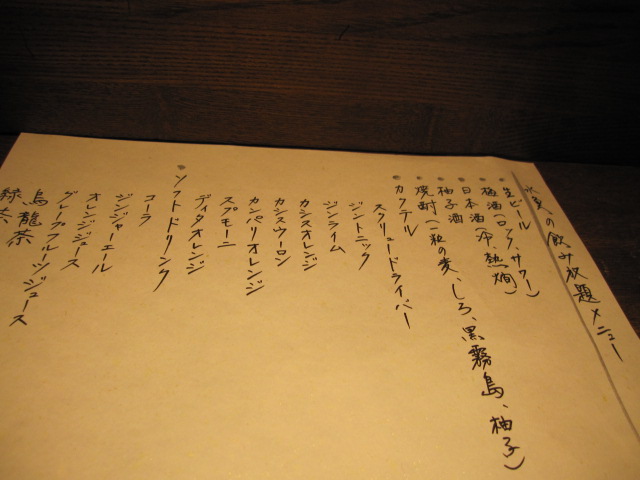 の飲み放題メニュー
生ビール
梅酒(ロック、サワー)
日本酒(冷、熱燗)
柚子酒
焼酎(一粒の麦、しろ、黒霧島、柚子)
カクテル
スクリュードライバー
ジントニック
ジンライム
カシスオレンジ
カシスウーロン
カンパリオレンジ
スプモーニ
ディタオレンジ
ソフトドリンク
コーラ
ジンジャーエール
オレンジジュース
グレープフルーツジュース
烏龍茶
緑茶